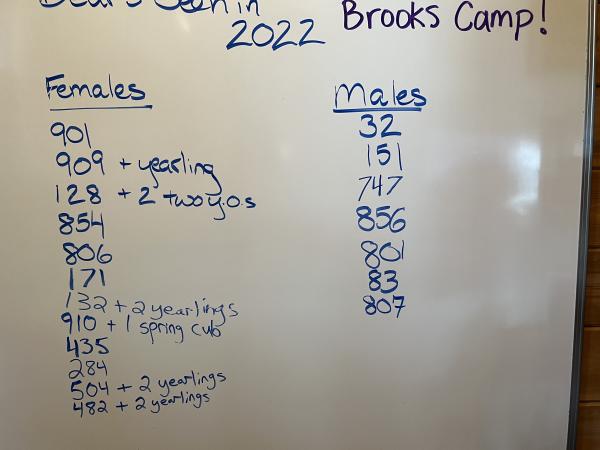 Bears Seen in
2022
Brooks Camp!
Females
901
909 + yearling
128 + 2 two y.o.s
854
806
171
132 + 2 yearlings
910 + 1 spring cub
435
284
504 + 2 yearlings
482 + 2 yearlings
Males
32
151
747
856
801
83
807